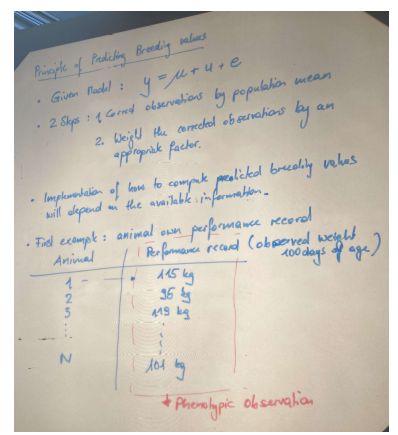 Principle of Predicting Breeding values
• Given Model : y = μ + u + e
• 2 Steps : 1. Correct observations by population mean
2. Weight the corrected observations by an
appropriate factor.
• Implementation of how to compute predicted breeding values
will depend on the available information.
• First example : animal own performance record
Animal Performance record (observed weight
100 days of age)
1 115 kg
2 95 kg
3 119 kg
N 101 kg
Phenotypic observation